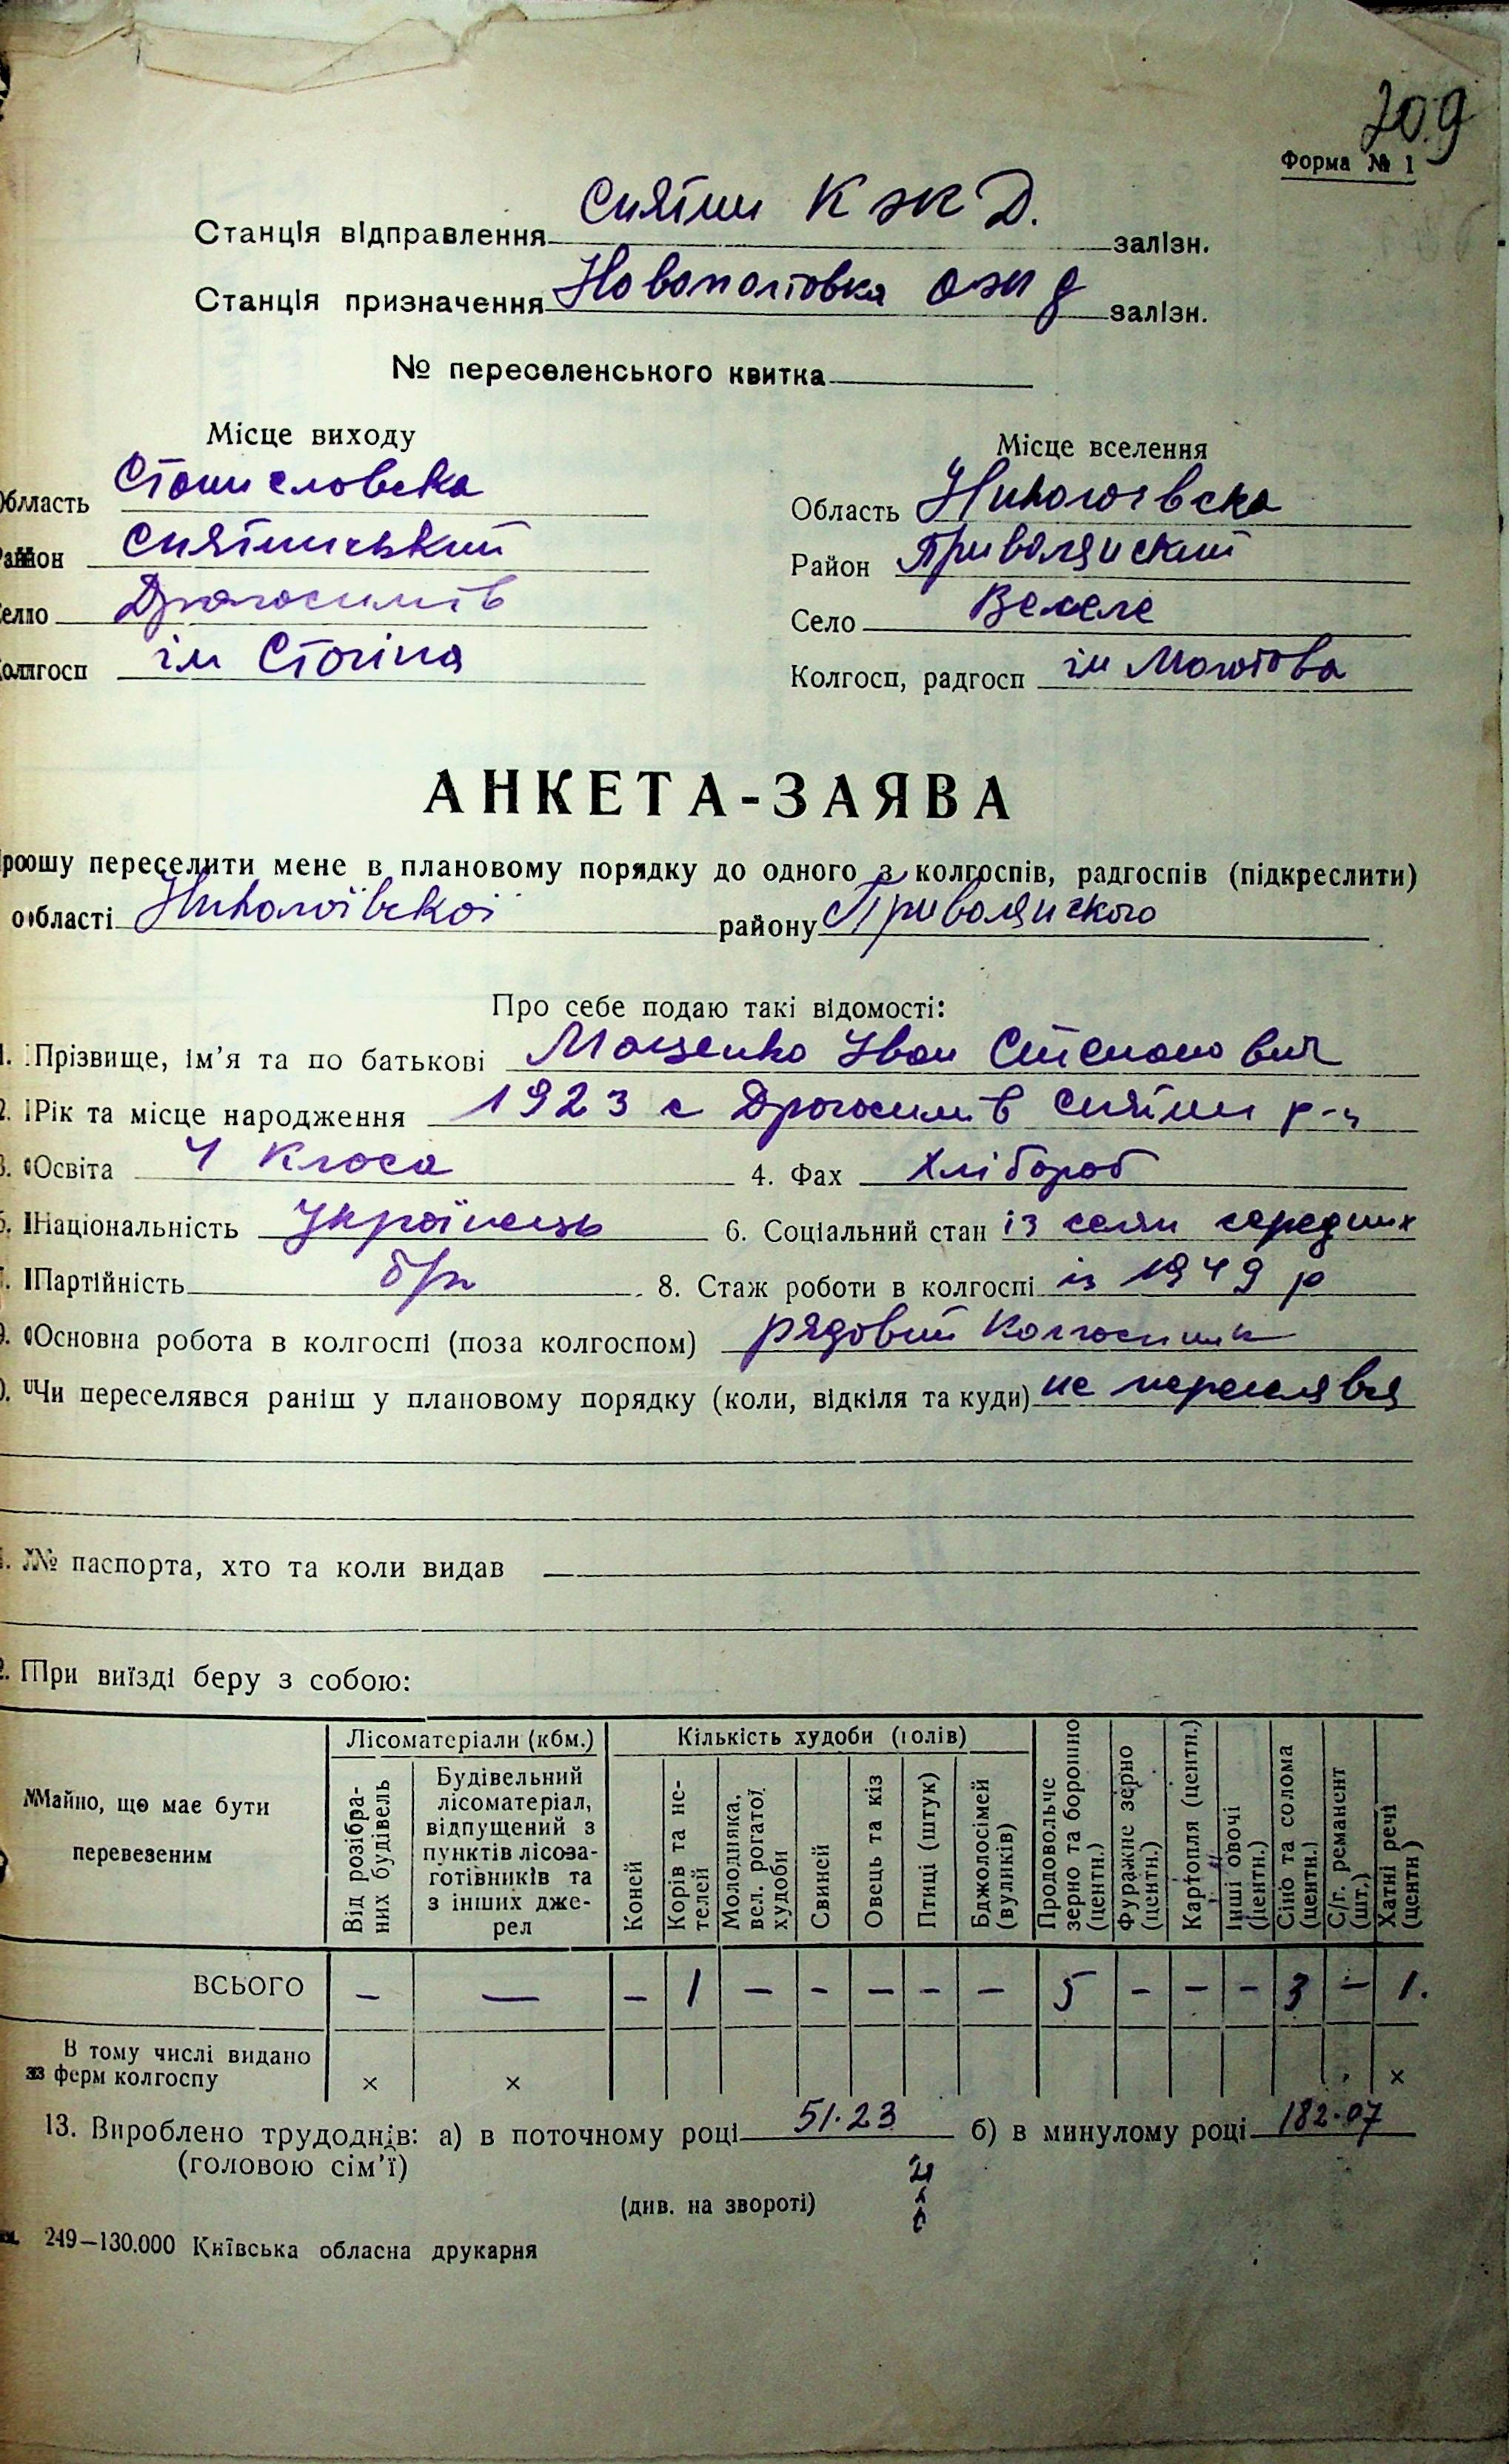 209
Форма № 1
Станція відправлення Снятин К ж Д. залізн.
Станція призначення Новополтовка О ж д залізн.
№ переселенського квитка
Місце виходу
Місце вселення
Область Станиславська
Область Миколаївська
Район Снятинський
Район Привольнский
Село Драгасимів
Село Веселе
Колгосп ім Сталіна
Колгосп, радгосп ім Молотова
АНКЕТА-ЗАЯВА
Прошу переселити мене в плановому порядку до одного з колгоспів, радгоспів (підкреслити)
області Миколаївскої району Привольнского
Про себе подаю такі відомості:
1. Прізвище, ім'я та по батькові Мащенко Іван Степанович
2. Рік та місце народження 1923 с Драгасимів Снятин р-н
3. Освіта 4 класа 4. Фах Хлібороб
5. Національність Українець 6. Соціальний стан із селян середних
7. Партійність б/п 8. Стаж роботи в колгоспі із 1949 р
9. Основна робота в колгоспі (поза колгоспом) рядовий колгоспник
10. Чи переселявся раніш у плановому порядку (коли, відкіля та куди) не переселявся
11. № паспорта, хто та коли видав
12. При виїзді беру з собою:
Майно, що має бути перевезеним
Лісоматеріали (кбм.)
Кількість худоби (голів)
Від розібраних будівель
Будівельний лісоматеріал, відпущений з пунктів лісозаготівників та з інших джерел
Коней
Корів та нетелей
Молодняка, вел. рогатої худоби
Свиней
Овець та кіз
Птиці (штук)
Бджолосімей (вуликів)
Продовольче зерно та борошно (центн.)
Фуражне зерно (центн.)
Картопля (центн.)
Інші овочі (центн.)
Сіно та солома (центн.)
С/г. реманент (шт.)
Хатні речі (центн)
ВСЬОГО – — – 1 – – – – – 5 – – – 3 – 1.
В тому числі видано з ферм колгоспу × × ×
13. Вироблено трудоднів: а) в поточному році 51.23 б) в минулому році 182.07
(головою сім'ї)
(див. на звороті)
249—130.000 Київська обласна друкарня